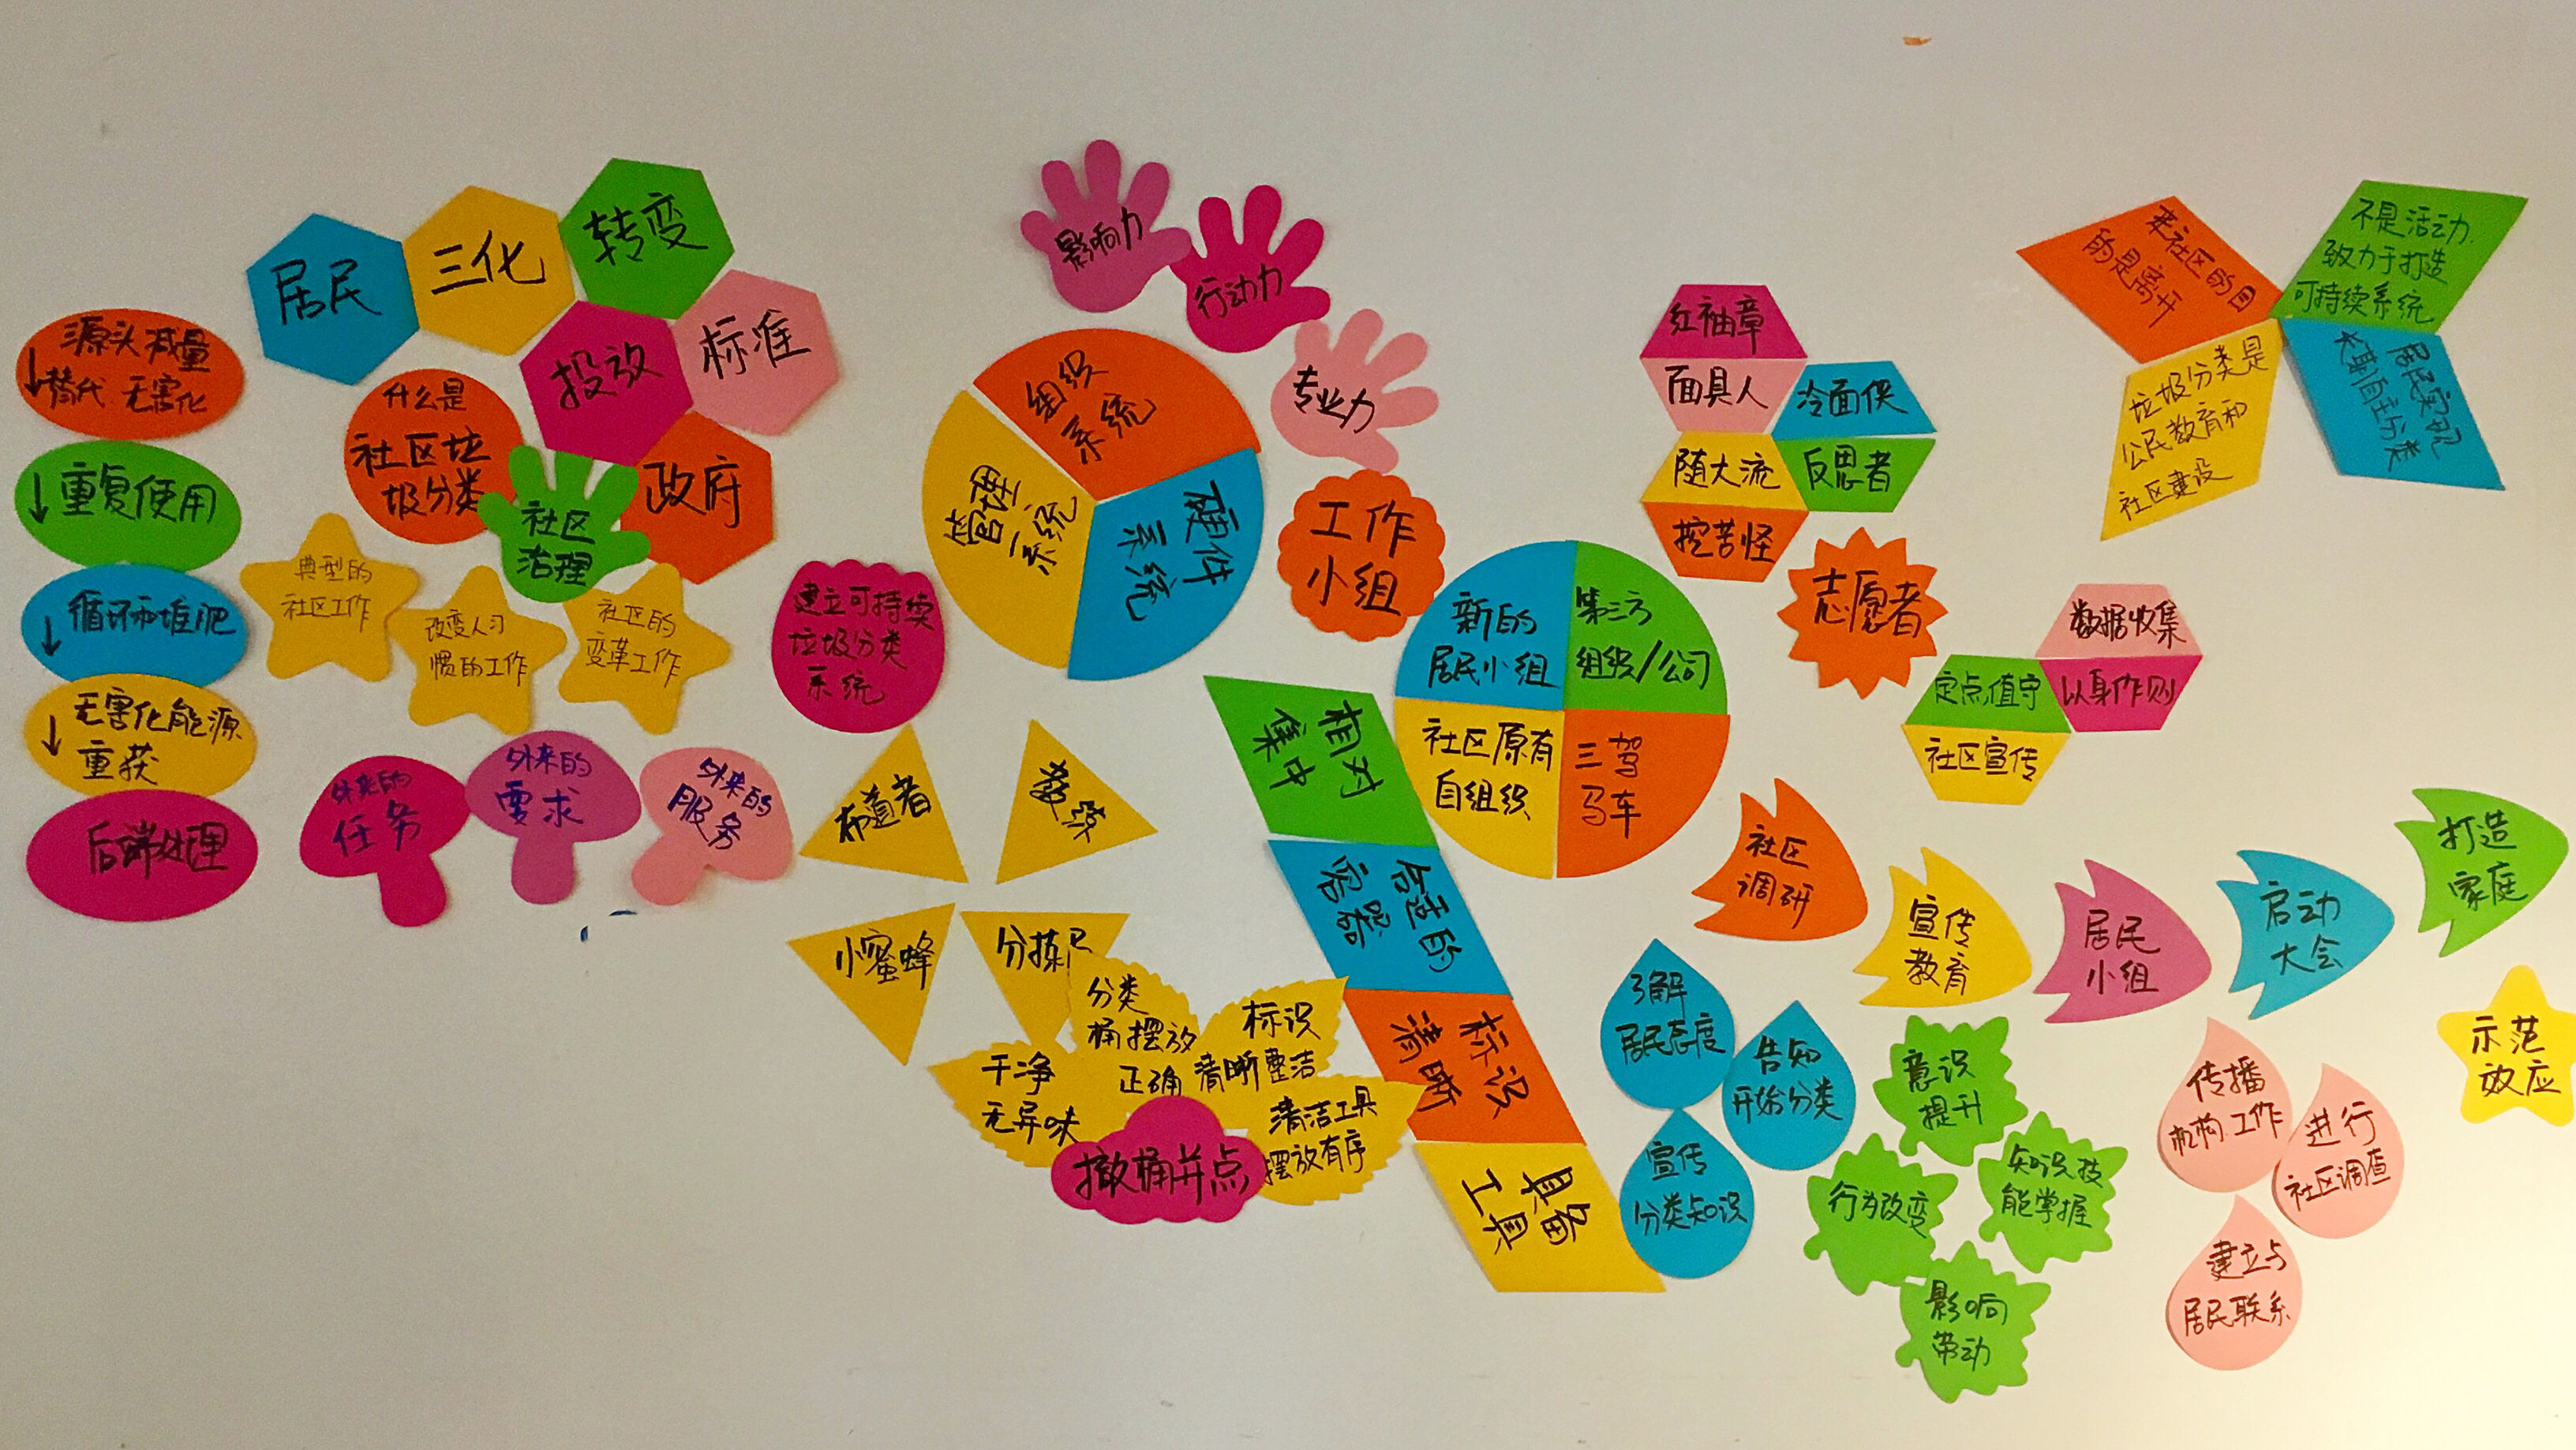 源头减量
↓替代 无害化
↓重复使用
↓循环和堆肥
↓无害化能源
重获
后端处理
居民
三化
转变
投放
标准
政府
什么是
社区垃
圾分类
社区
治理
典型的
社区工作
改变人习
惯的工作
社区的
变革工作
外来的
任务
外来的
要求
外来的
服务
建立可持续
垃圾分类
系统
影响力
行动力
专业力
组织
系统
管理
系统
硬件
系统
工作
小组
布道者
教练
小蜜蜂
分拣
分类
桶摆放
正确
标识
清晰整洁
干净
无异味
清洁工具
摆放有序
撤桶并点
相对
集中
合适的
容器
标识
清晰
具备
工具
新的
居民小组
第三方
组织/公司
社区原有
自组织
三驾
马车
红袖章
面具人
冷面侠
随大流
反思者
挖苦怪
志愿者
数据收集
定点值守
以身作则
社区宣传
来社区的目
的是离开
不是活动
致力于打造
可持续系统
垃圾分类是
公民教育和
社区建设
居民实现
长期自主分类
社区
调研
宣传
教育
居民
小组
启动
大会
打造
家庭
示范
效应
了解
居民态度
告知
开始分类
宣传
分类知识
意识
提升
行为改变
知识技
能掌握
影响
带动
传播
机构工作
进行
社区调查
建立与
居民联系